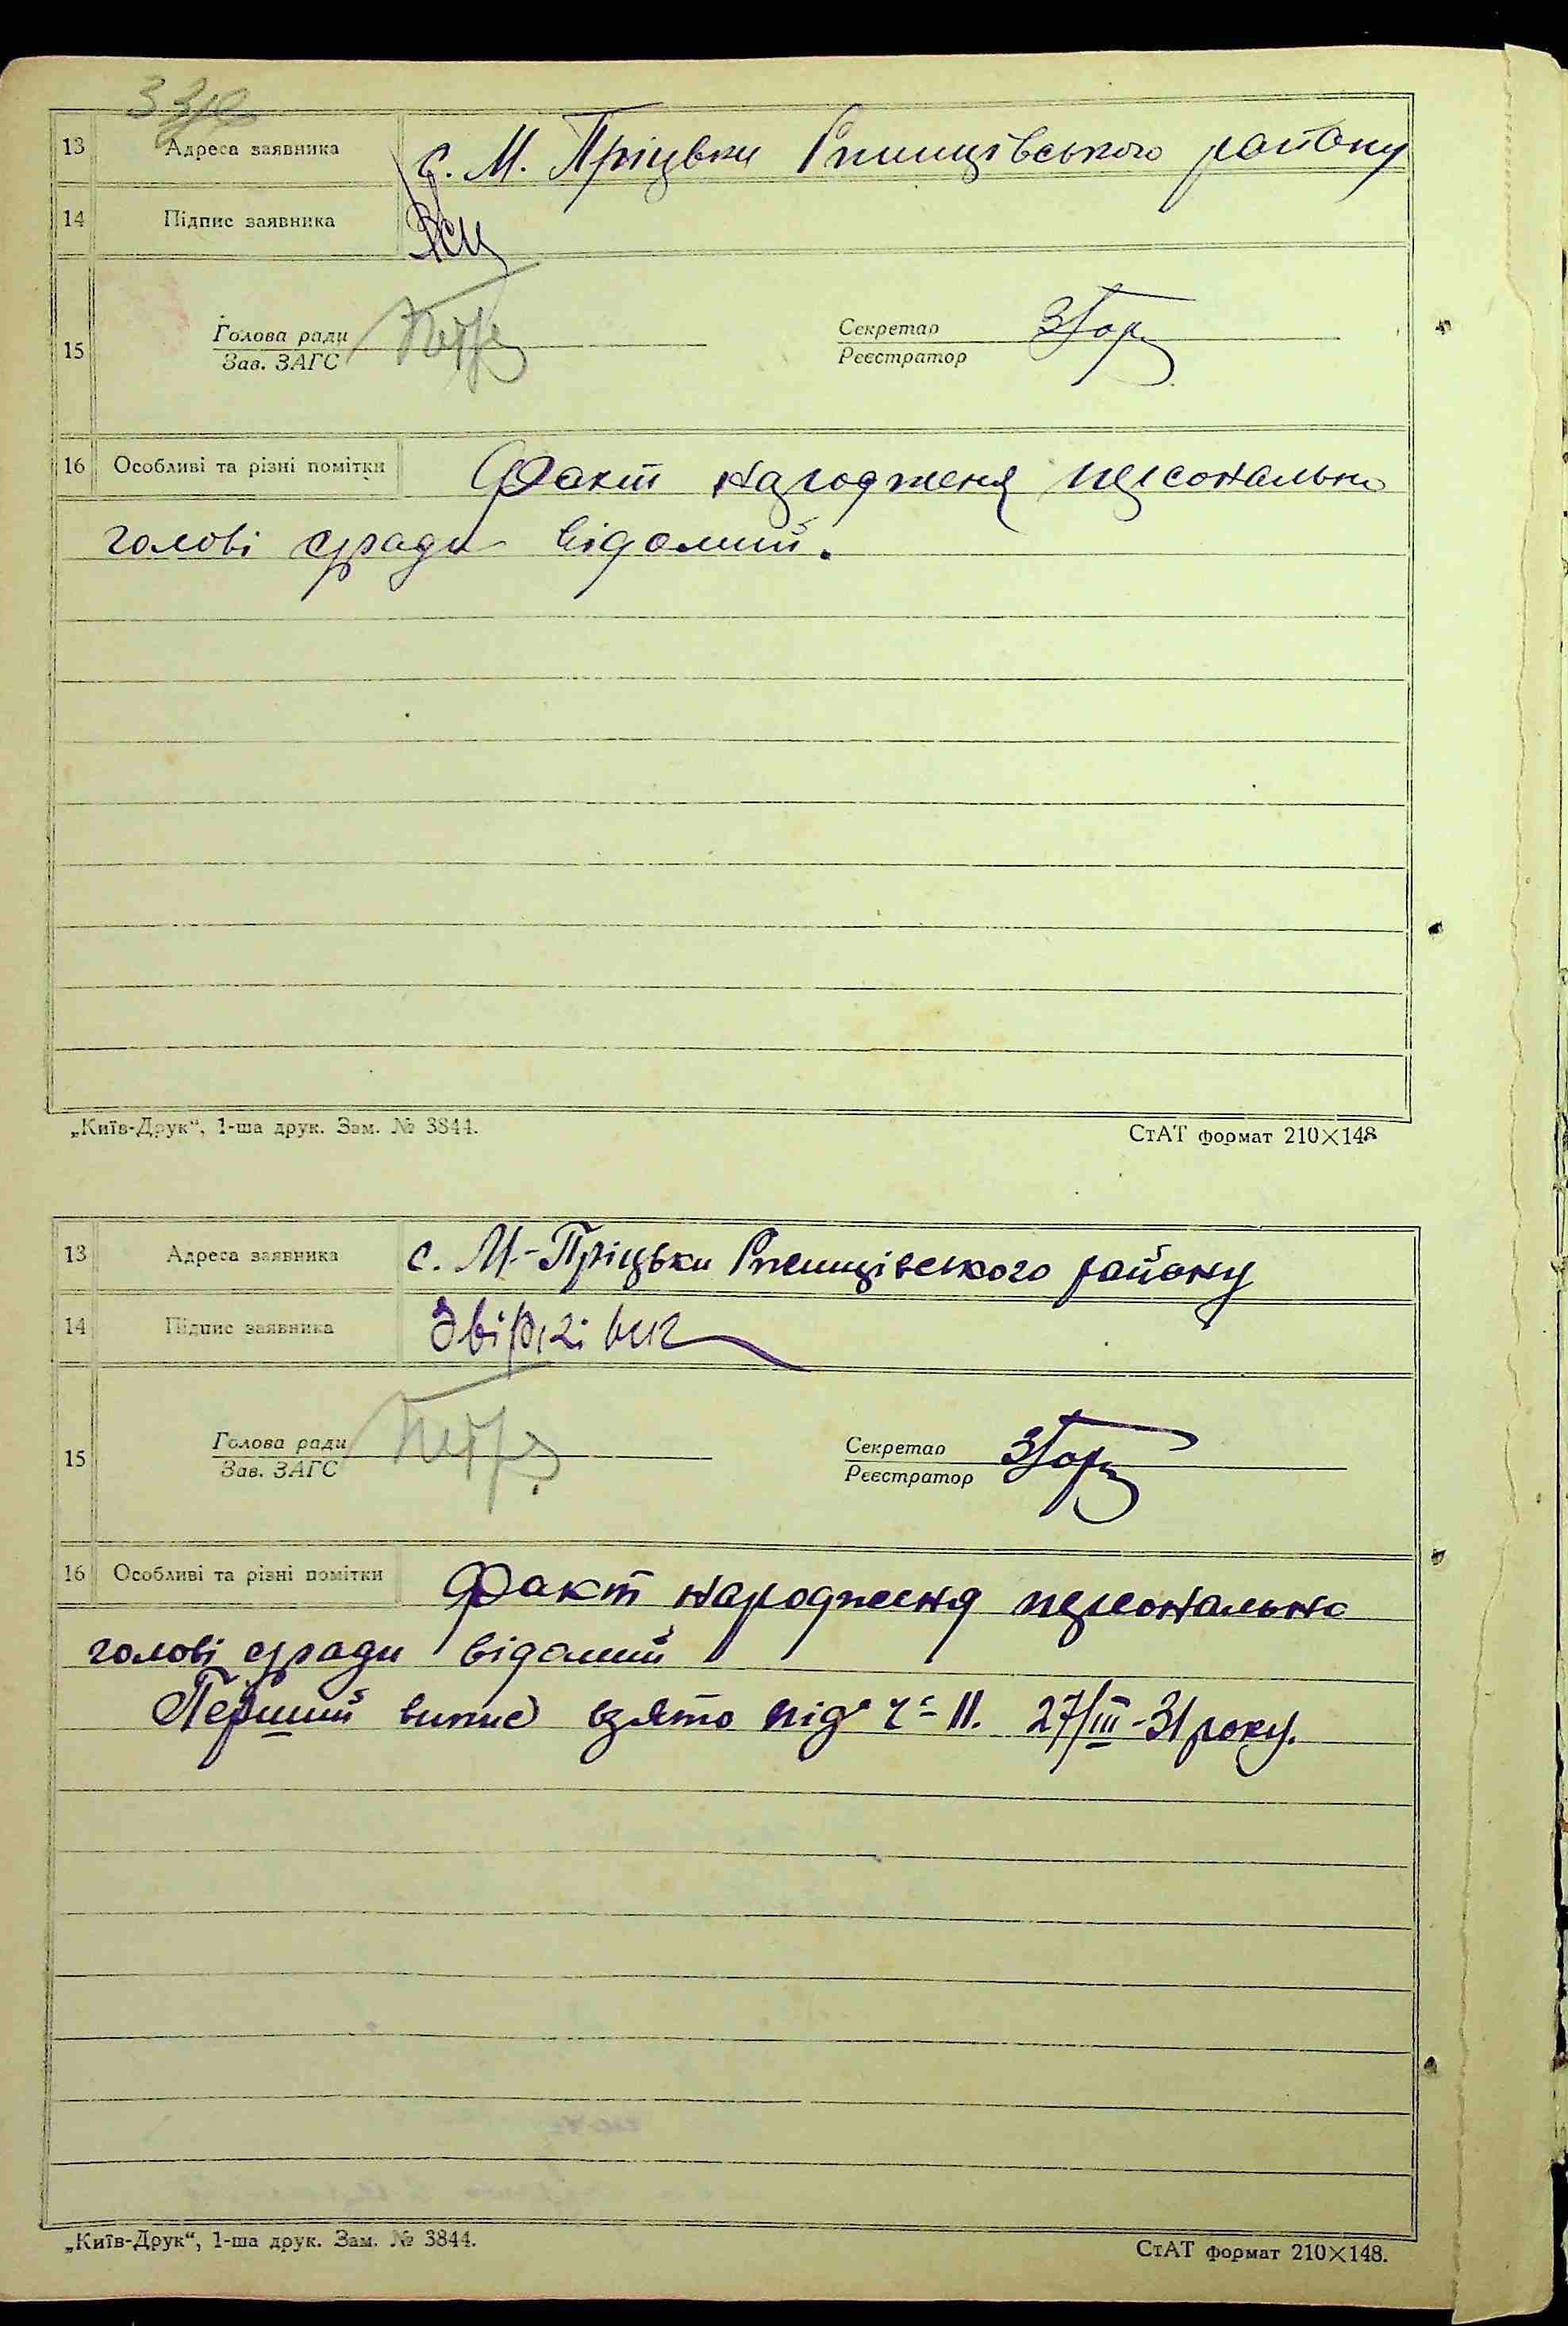 13 Адреса заявника с. М. Пріцьки Ржищівського району
14 Підпис заявника
15 Голова ради Секретар
Зав. ЗАГС Реєстратор
16 Особливі та різні помітки Факт народженя персонально
голові с/ради відомий.
„Київ-Друк“, 1-ша друк. Зам. № 3844.
СтАТ формат 210×148
13 Адреса заявника с. М-Пріцьки Ржищівського району
14 Підпис заявника
15 Голова ради Секретар
Зав. ЗАГС Реєстратор
16 Особливі та різні помітки Факт народження персонально
голові с/ради відомий
Перший випис взято під ч= 11. 27/III-31 року.
„Київ-Друк“, 1-ша друк. Зам. № 3844.
СтАТ формат 210×148.